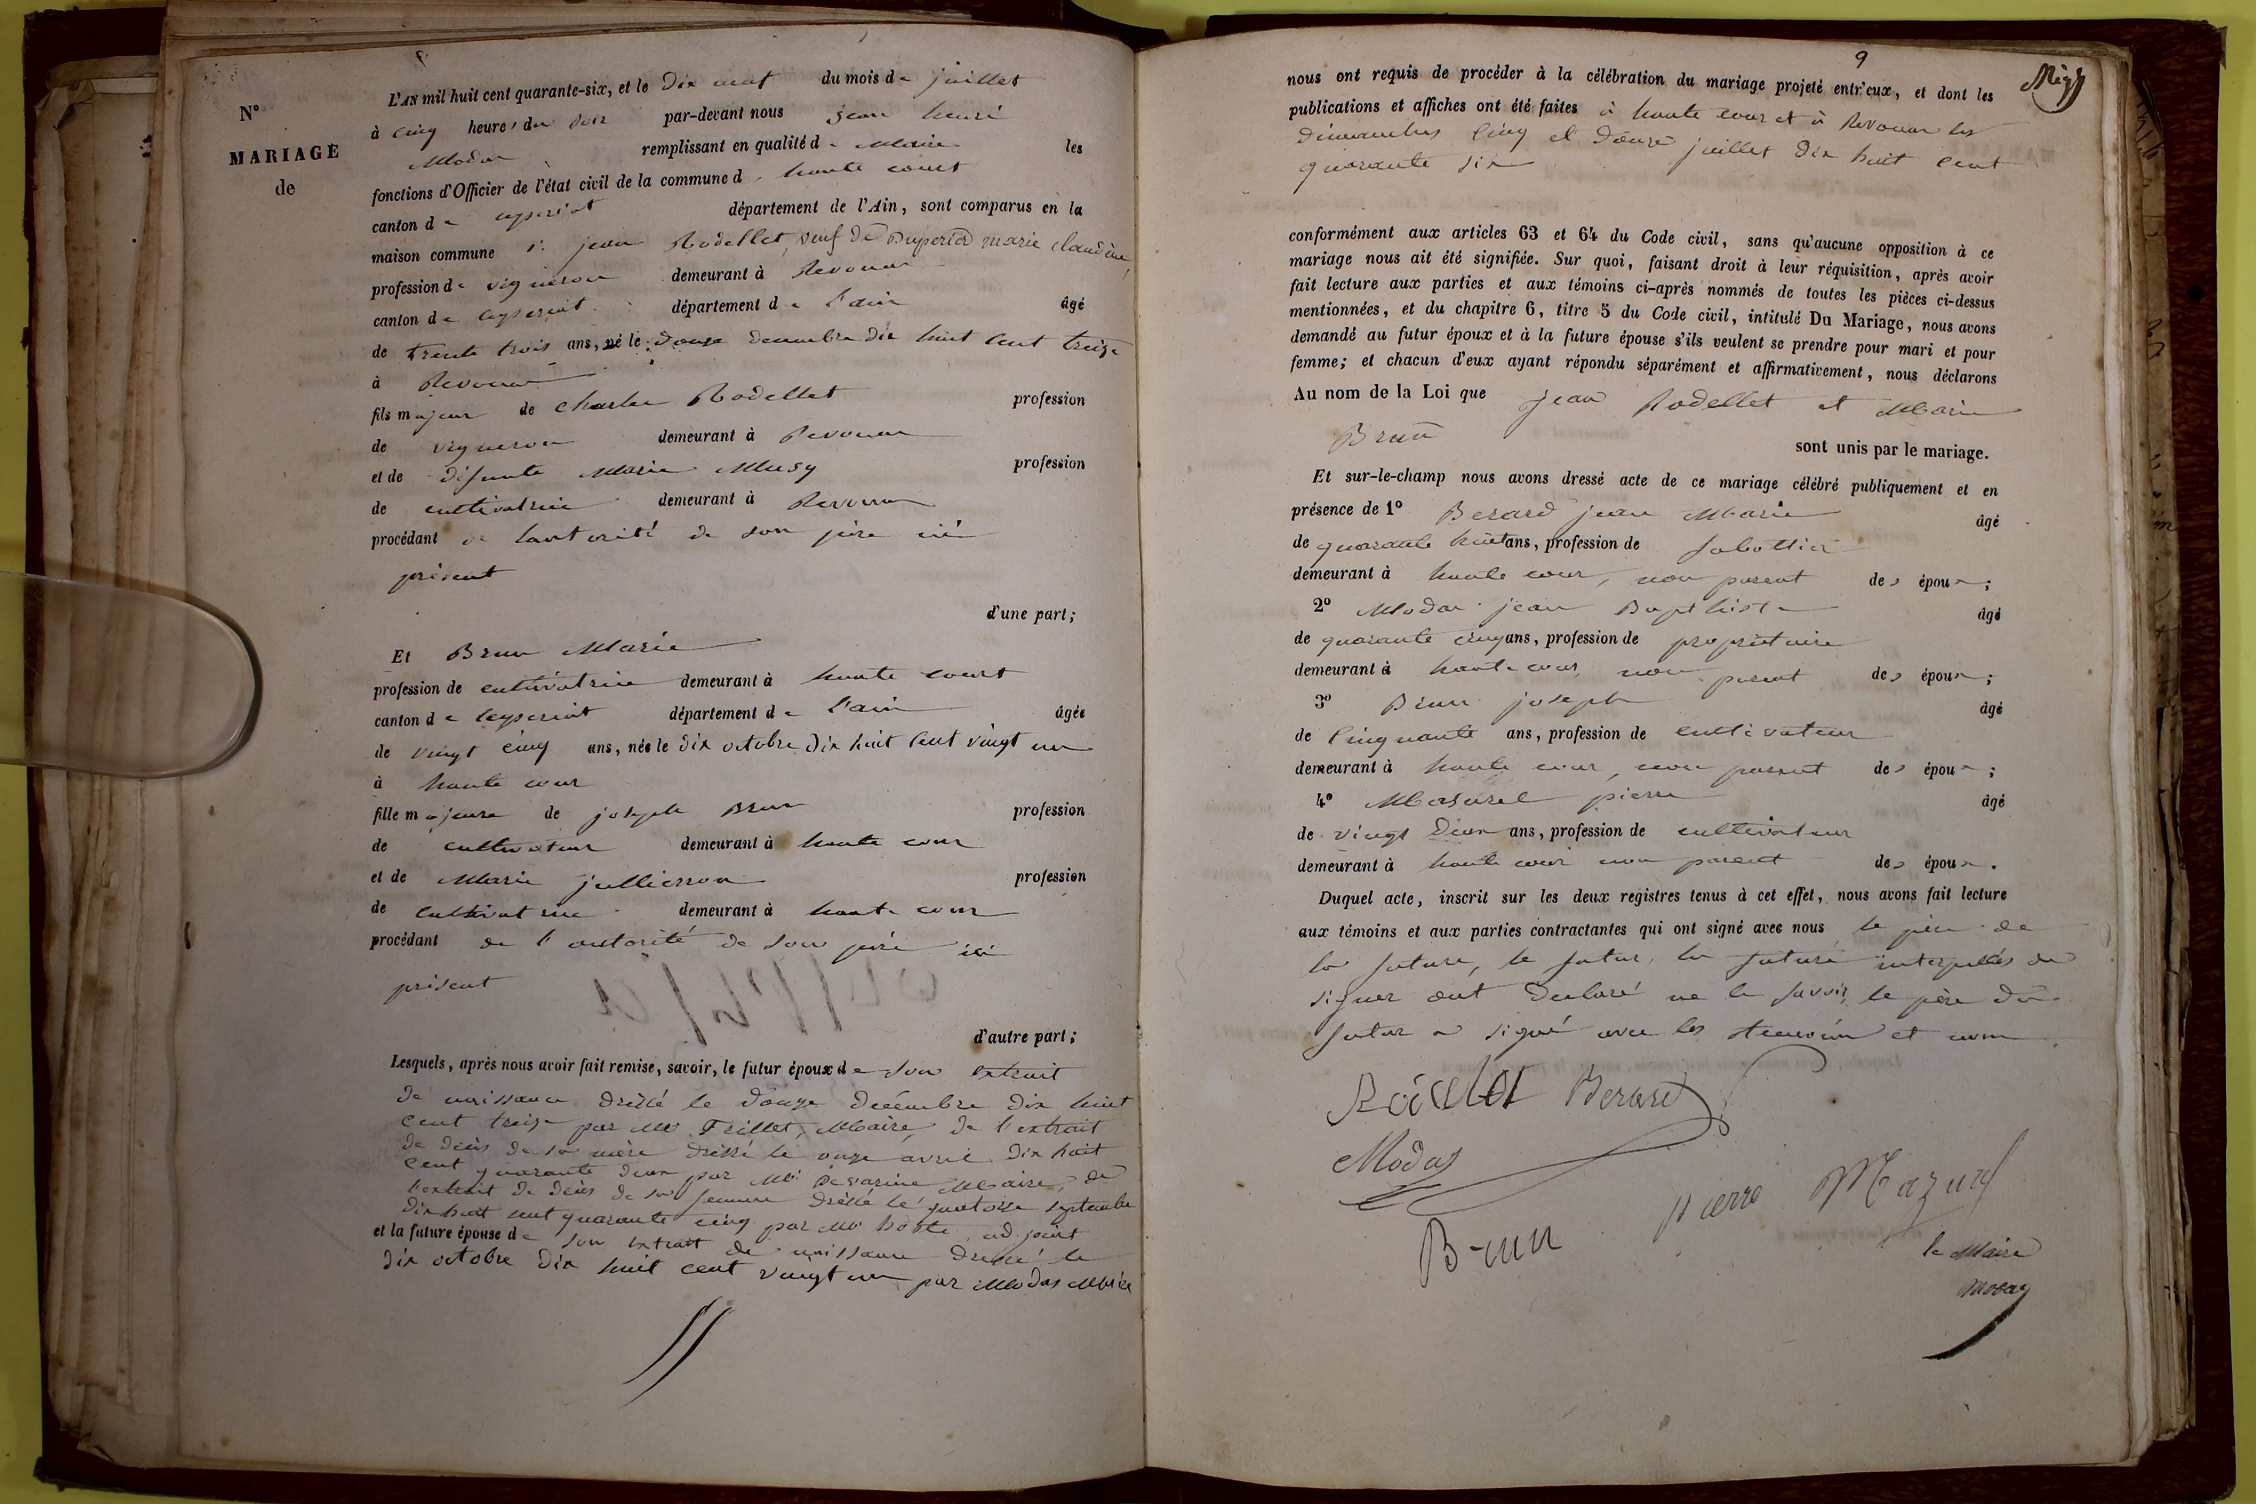 N°
MARIAGE
de
L'AN mil huit cent quarante-six, et le Dix neuf du mois de juillet
à cinq heures du soir par-devant nous jean henri
Modas remplissant en qualité de Maire les
fonctions d'Officier de l'état civil de la commune d haute court
canton de ceyseriat département de l'Ain, sont comparus en la
maison commune 1° jean Rodellet, veuf de Duperid marie claudine,
profession de vigneron demeurant à Revonan
canton de ceyseriat département de l'ain âgé
de trente trois ans, né le Douze decembre dix huit cent treize
à Revonan
fils majeur de charles Rodellet profession
de vigneron demeurant à Revonan
et de défunte Marie Musy profession
de cultivatrice demeurant à Revonan
procédant de l'autorité de son père ici
présent
d'une part;
Et Brun Marie
profession de cultivatrice demeurant à haute court
canton de ceyseriat département de l'ain âgée
de vingt cinq ans, née le dix octobre dix huit cent vingt un
à haute cour
fille majeure de joseph Brun profession
de cultivateur demeurant à haute cour
et de Marie jullierron profession
de cultivatrice demeurant à haute cour
procédant de l'autorité de son père ici
présent
d'autre part;
Lesquels, après nous avoir fait remise, savoir, le futur époux de son extrait
de naissance dréssé le douze décembre dix huit
cent treize par Mr Trillet, Maire, de l'extrait
de décès de sa mère dréssé le onze avril dix huit
cent quarante deux par Mr Maire, de
l'extrait de décès de sa femme dréssé le quatorze septembre
dix huit cent quarante cinq par Mr adjoint
et la future épouse de son extrait de naissance dressé le
dix octobre dix huit cent vingt un par Modas Maire
9
Mégy
nous ont requis de procéder à la célébration du mariage projeté entr'eux, et dont les
publications et affiches ont été faites à haute cour et à Revonan les
dimanches cinq et douze juillet dix huit cent
quarante six
conformément aux articles 63 et 64 du Code civil, sans qu'aucune opposition à ce
mariage nous ait été signifiée. Sur quoi, faisant droit à leur réquisition, après avoir
fait lecture aux parties et aux témoins ci-après nommés de toutes les pièces ci-dessus
mentionnées, et du chapitre 6, titre 5 du Code civil, intitulé Du Mariage, nous avons
demandé au futur époux et à la future épouse s'ils veulent se prendre pour mari et pour
femme; et chacun d'eux ayant répondu séparément et affirmativement, nous déclarons
Au nom de la Loi que Jean Rodellet et Marie
Brun
sont unis par le mariage.
Et sur-le-champ nous avons dressé acte de ce mariage célébré publiquement et en
présence de 1° Berard jean Marie âgé
de quarante huit ans, profession de sabottier
demeurant à haute cour, non parent des époux;
2° Modas jean Baptiste âgé
de quarante cinq ans, profession de propriétaire
demeurant à haute cour, non parent des époux;
3° Brun joseph âgé
de cinquante ans, profession de cultivateur
demeurant à haute cour, non parent des époux;
4° Masurel pierre âgé
de vingt deux ans, profession de cultivateur
demeurant à haute cour non parent des époux.
Duquel acte, inscrit sur les deux registres tenus à cet effet, nous avons fait lecture
aux témoins et aux parties contractantes qui ont signé avec nous, le père de
la future, le futur, la future interpellés de
signer ont déclaré ne le savoir, le père du
futur a signé avec les témoins et nous
Berard
Modas
Brun
pierre Mazurel
le Maire
Modas